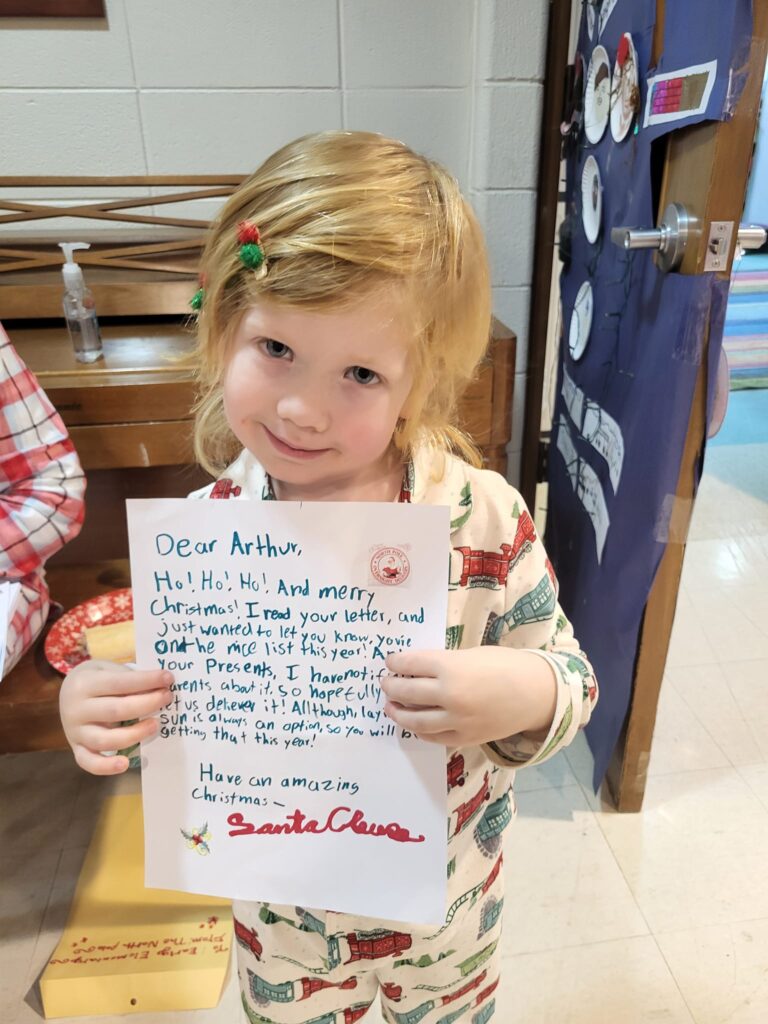 Dear Arthur,
NORTH POLE
Ho! Ho! Ho! And merry
Christmas! I read your letter, and
just wanted to let you know, you're
on the nice list this year! An
your Presents, I have notif
arents about it, so hopefully
let us deliever it! Allthough, lay
sun is always an option, so you will be
getting that this year!
Have an amazing
Christmas-
Santa Clause
To: Early Elementary
From: The North pole